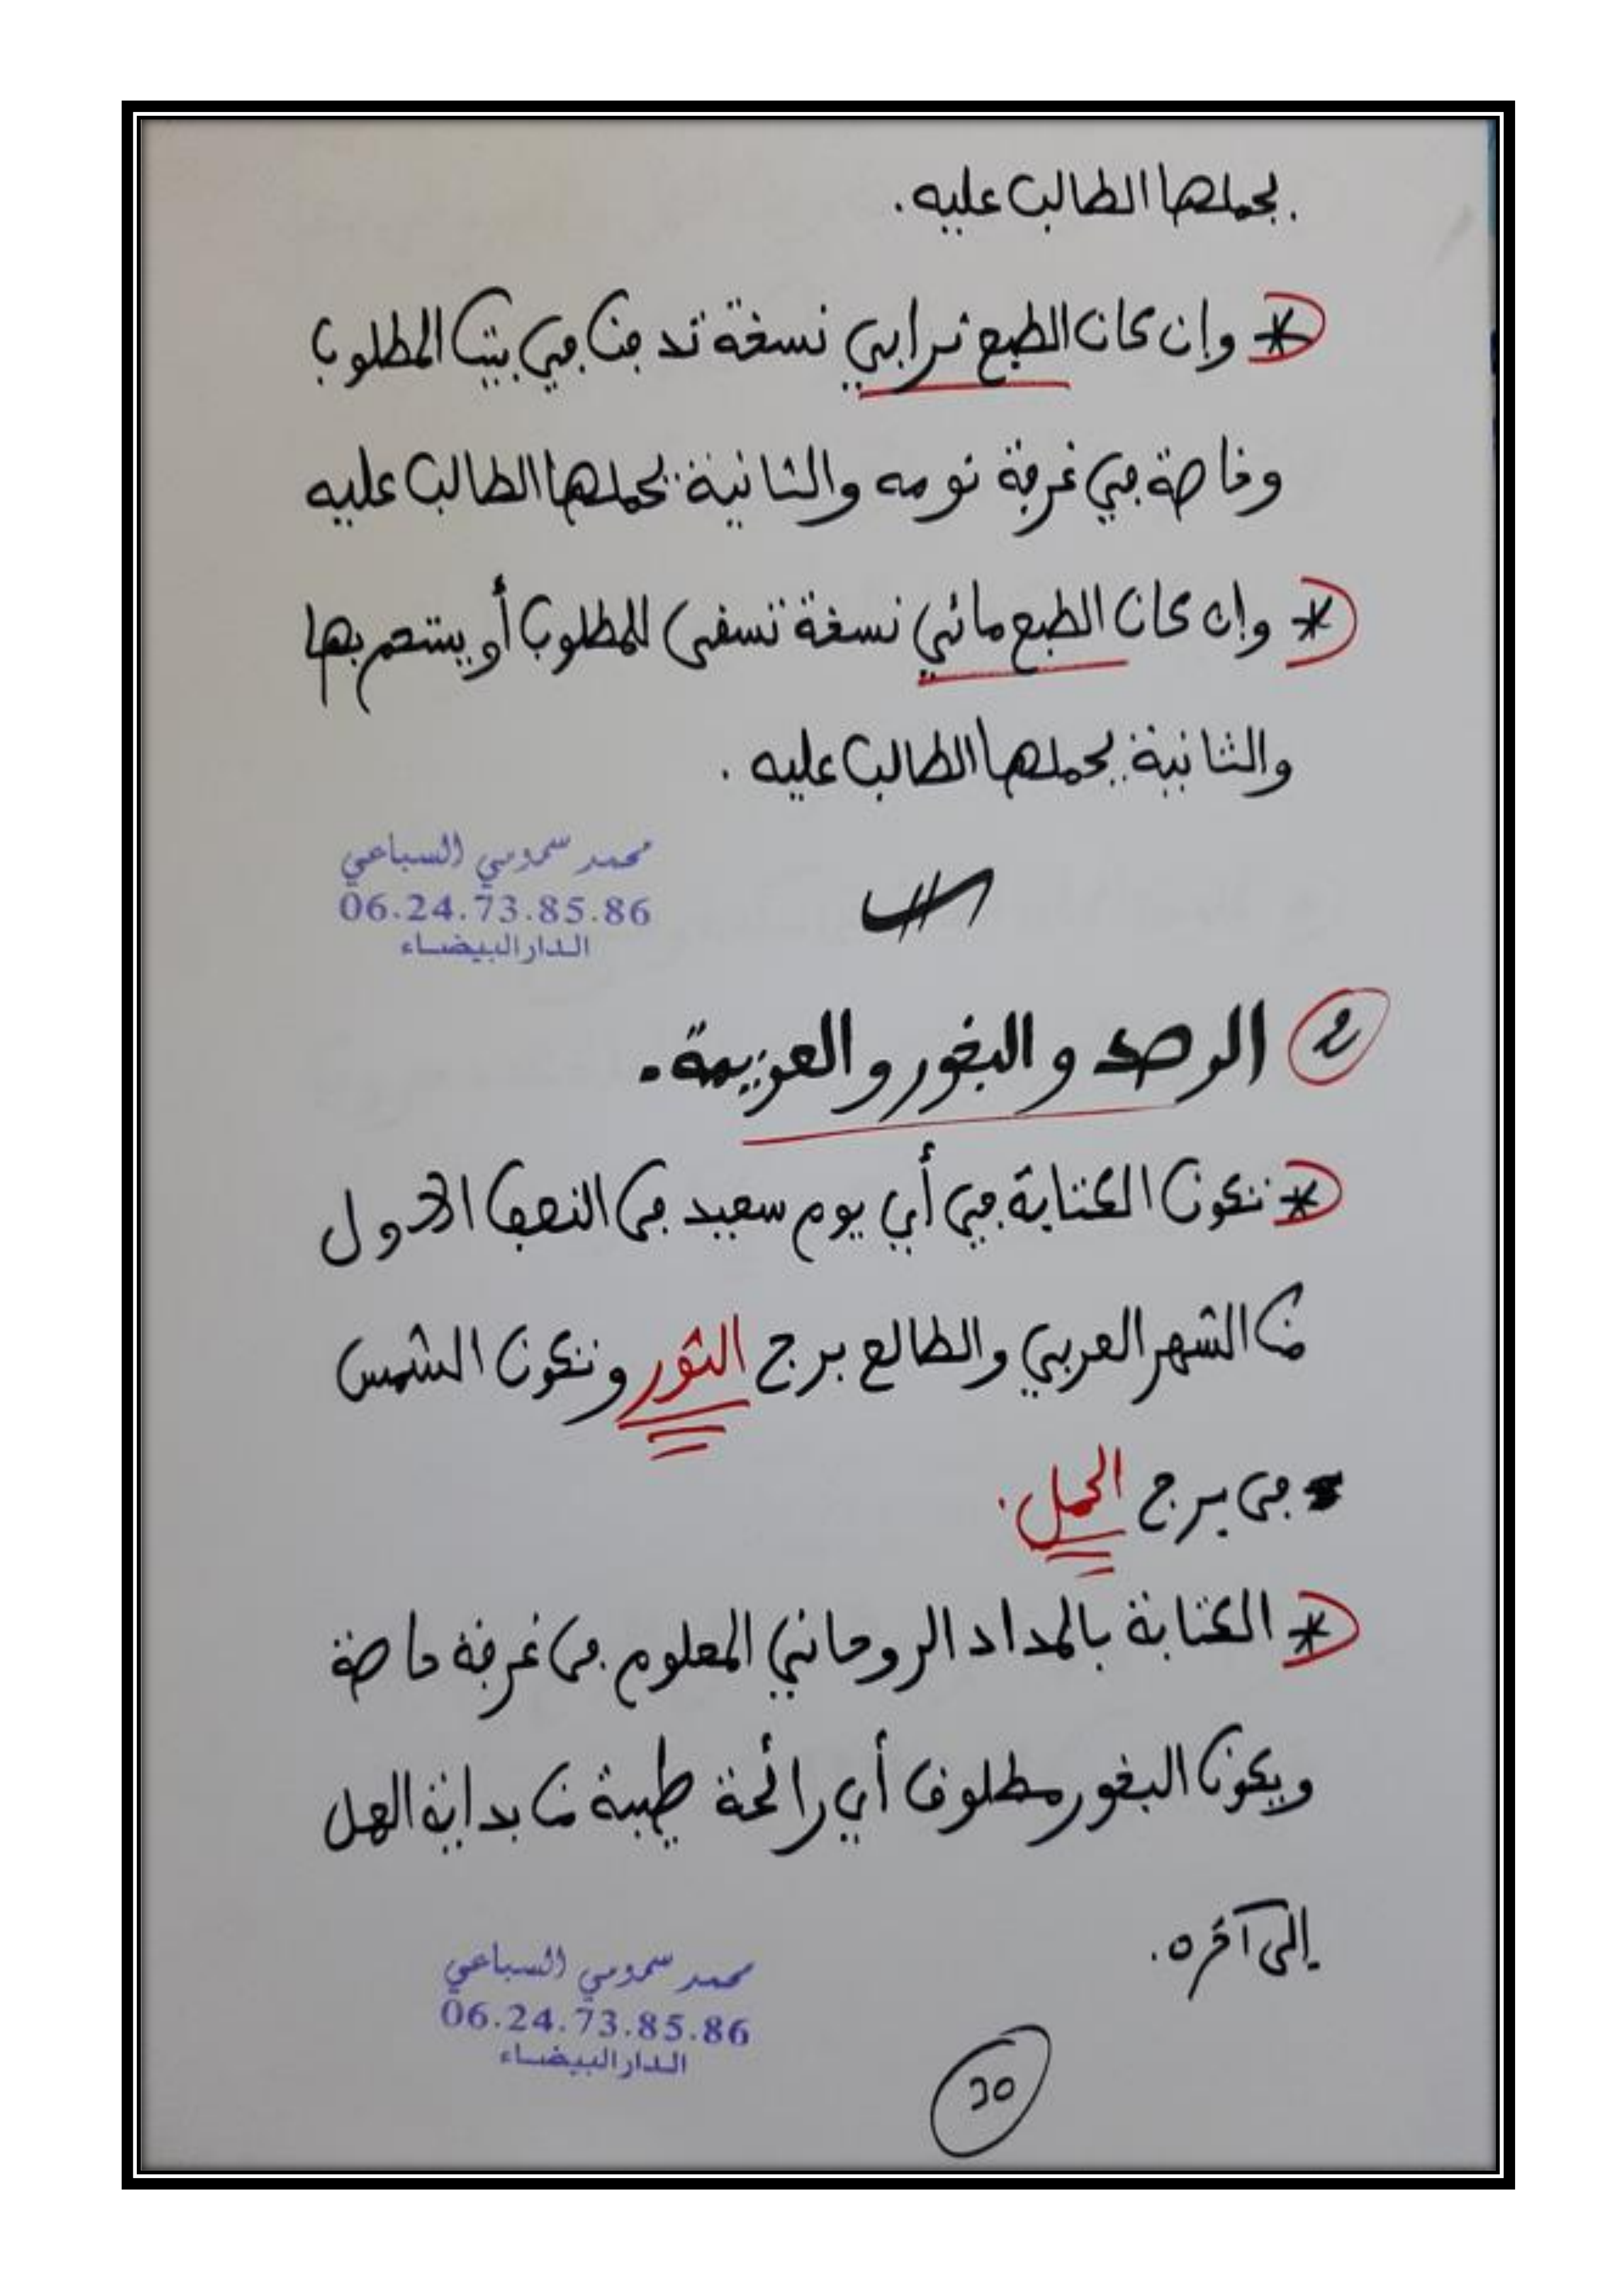 يحملها الطالب عليه.
* وإن كان الطبع ترابي نسخة تدفن في بيت المطلوب
وخاصة في غرفة نومه والثانية يحملها الطالب عليه
* وإن كان الطبع مائي نسخة تسقى للمطلوب أو يستحم بها
والثانية يحملها الطالب عليه .
محمد سموسي السباعي
06.24.73.85.86
الدار البيضاء
2 الرصد والبخور والعزيمة.
* تكون الكتابة في أي يوم سعيد في النصف الاول
من الشهر العربي والطالع برج الثور وتكون الشمس
في برج الحمل.
* الكتابة بالمداد الروحاني المعلوم في غرفة خاصة
ويكون البخور مطلوق أي رائحة طيبة من بداية العمل
إلى آخره.
محمد سموسي السباعي
06.24.73.85.86
الدار البيضاء
30